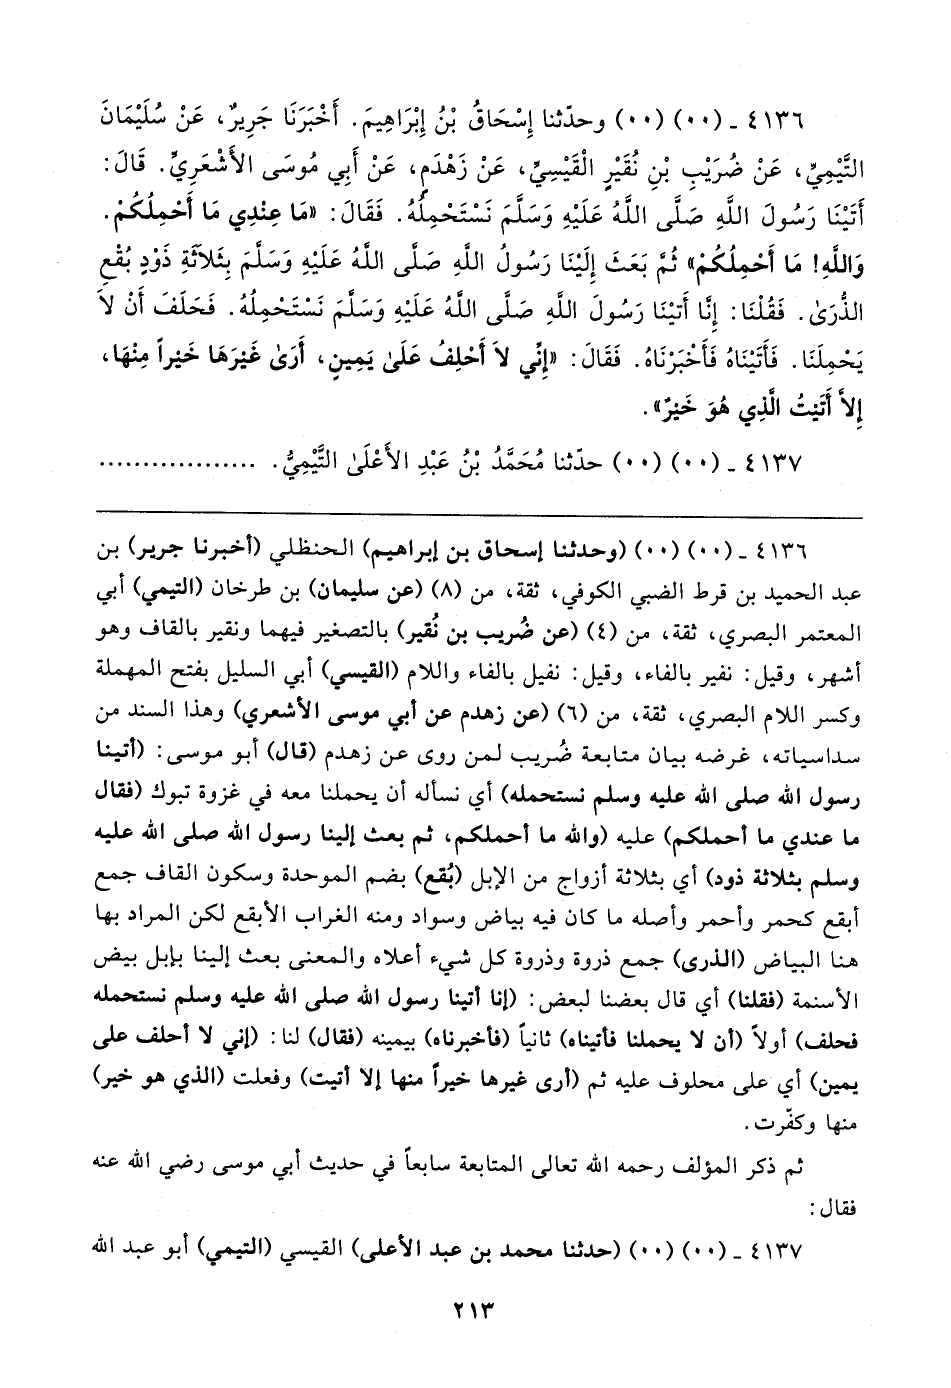 ٤١٣٦ ـ (٠٠) (٠٠) وحدّثنا إِسْحَاقُ بْنُ إِبْرَاهِيمَ. أَخْبَرَنَا جَرِيرٌ، عَنْ سُلَيْمَانَ
التَّيْمِيِّ، عَنْ ضُرَيْبِ بْنِ نُقَيْرٍ الْقَيْسِيِّ، عَنْ زَهْدَمٍ، عَنْ أَبِي مُوسَى الأَشْعَرِيِّ. قَالَ:
أَتَيْنَا رَسُولَ اللهِ صَلَّى اللَّهُ عَلَيْهِ وَسَلَّمَ نَسْتَحْمِلُهُ. فَقَالَ: «مَا عِنْدِي مَا أَحْمِلُكُمْ.
وَاللهِ! مَا أَحْمِلُكُمْ» ثُمَّ بَعَثَ إِلَيْنَا رَسُولُ اللهِ صَلَّى اللَّهُ عَلَيْهِ وَسَلَّمَ بِثَلاَثَةِ ذَوْدٍ بُقْعِ
الذُّرَىٰ. فَقُلْنَا: إِنَّا أَتَيْنَا رَسُولَ اللهِ صَلَّى اللَّهُ عَلَيْهِ وَسَلَّمَ نَسْتَحْمِلُهُ. فَحَلَفَ أَنْ لاَ
يَحْمِلَنَا. فَأَتَيْنَاهُ فَأَخْبَرْنَاهُ. فَقَالَ: «إِنِّي لاَ أَحْلِفُ عَلَىٰ يَمِينٍ، أَرَىٰ غَيْرَهَا خَيْراً مِنْهَا،
إِلاَّ أَتَيْتُ الَّذِي هُوَ خَيْرٌ».
٤١٣٧ ـ (٠٠) (٠٠) حدّثنا مُحَمَّدُ بْنُ عَبْدِ الأَعْلَىٰ التَّيْمِيُّ. ..................
٤١٣٦ ـ (٠٠) (٠٠) (وحدثنا إسحاق بن إبراهيم) الحنظلي (أخبرنا جرير) بن
عبد الحميد بن قرط الضبي الكوفي، ثقة، من (٨) (عن سليمان) بن طرخان (التيمي) أبي
المعتمر البصري، ثقة، من (٤) (عن ضُريب بن نُقير) بالتصغير فيهما ونقير بالقاف وهو
أشهر، وقيل: نفير بالفاء، وقيل: نفيل بالفاء واللام (القيسي) أبي السليل بفتح المهملة
وكسر اللام البصري، ثقة، من (٦) (عن زهدم عن أبي موسى الأشعري) وهذا السند من
سداسياته، غرضه بيان متابعة ضُريب لمن روى عن زهدم (قال) أبو موسى: (أتينا
رسول الله صلى الله عليه وسلم نستحمله) أي نسأله أن يحملنا معه في غزوة تبوك (فقال
ما عندي ما أحملكم) عليه (والله ما أحملكم، ثم بعث إلينا رسول الله صلى الله عليه
وسلم بثلاثة ذود) أي بثلاثة أزواج من الإبل (بُقع) بضم الموحدة وسكون القاف جمع
أبقع كحمر وأحمر وأصله ما كان فيه بياض وسواد ومنه الغراب الأبقع لكن المراد بها
هنا البياض (الذرى) جمع ذروة وذروة كل شيء أعلاه والمعنى بعث إلينا بإبل بيض
الأسنمة (فقلنا) أي قال بعضنا لبعض: (إنا أتينا رسول الله صلى الله عليه وسلم نستحمله
فحلف) أولاً (أن لا يحملنا فأتيناه) ثانياً (فأخبرناه) بيمينه (فقال) لنا: (إني لا أحلف على
يمين) أي على محلوف عليه ثم (أرى غيرها خيراً منها إلا أتيت) وفعلت (الذي هو خير)
منها وكفّرت.
ثم ذكر المؤلف رحمه الله تعالى المتابعة سابعاً في حديث أبي موسى رضي الله عنه
فقال:
٤١٣٧ ـ (٠٠) (٠٠) (حدثنا محمد بن عبد الأعلى) القيسي (التيمي) أبو عبد الله
٢١٣